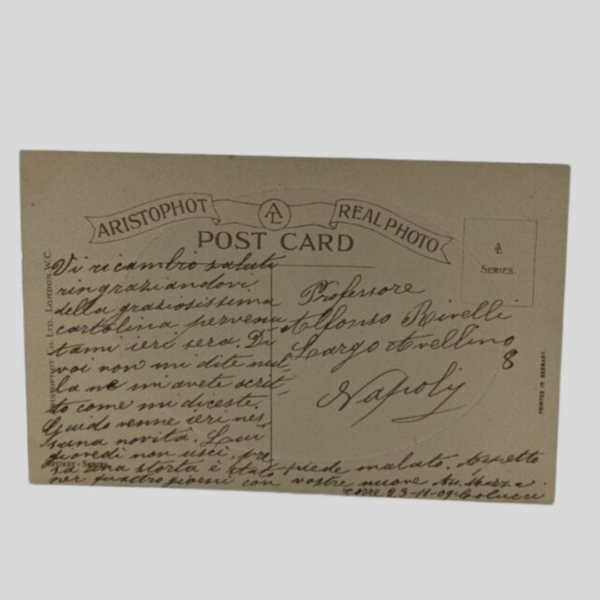 ARISTOPHOT
AL
REAL PHOTO
POST CARD
AL
SERIES.
LTD. LONDON W.C.
PRINTED IN GERMANY
Vi ricambio saluti
ringraziandovi
della graziosissima
cartolina pervenu
tami ieri sera. Di
voi non mi dite nul
la ne mi avete scrit
to come mi diceste.
Guido venne ieri nes
suna novità. Lui
giovedì non uscì,
una storta è stato piede malato. Aspetto
per quattro giorni con vostre nuove
23-11-09 Colucci
Professore
Alfonso Rivelli
Largo Avellino
8
Napoli